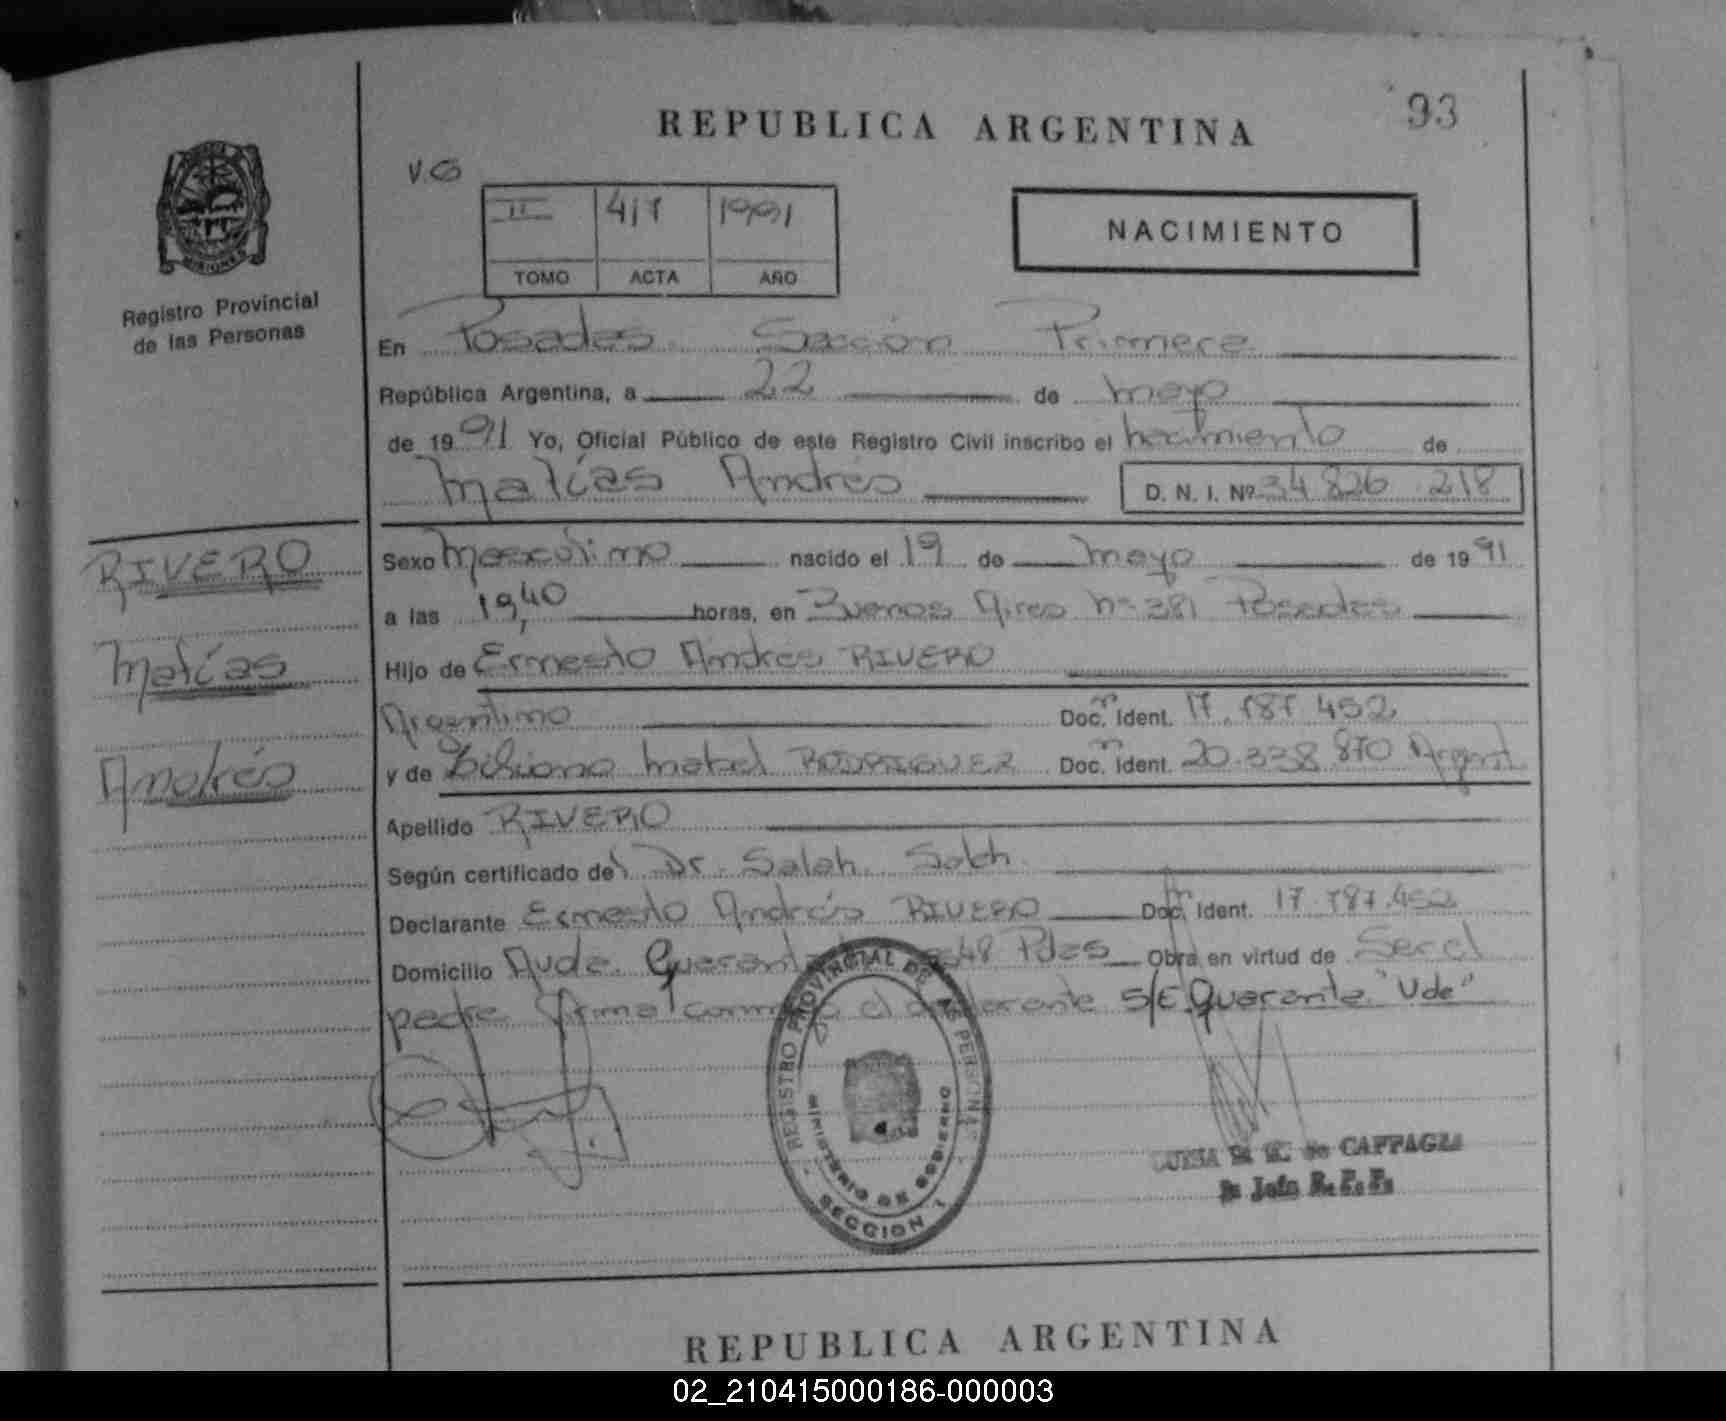 REPUBLICA ARGENTINA
93
V.G
II 417 1991
TOMO ACTA AÑO
NACIMIENTO
MISIONES
Registro Provincial
de las Personas
En Posadas Sección Primera
República Argentina, a 22 de mayo
de 1991 Yo, Oficial Público de este Registro Civil inscribo el nacimiento de
Matías Andrés D. N. I. Nº 34 826 218
RIVERO
Matías
Andrés
Sexo Masculino nacido el 19 de mayo de 1991
a las 19,40 horas, en Buenos Aires nº 381 Posadas
Hijo de Ernesto Andres RIVERO
Argentino Doc. Ident. 17.787.452
y de Liliana Mabel RODRIGUEZ Doc. Ident. 20.338.870 Argent
Apellido RIVERO
Según certificado del Dr. Salah Saleh
Declarante Ernesto Andrés RIVERO Doc. Ident. 17.787.452
Domicilio Avda. 48 Pdas Obra en virtud de Ser el
padre firma conmigo el declarante S/E. Quaranta "Vde"
REGISTRO PROVINCIAL DE LAS PERSONAS
MINISTERIO DE GOBIERNO
SECCION 1
de CAFFAGNI
Jefe R. P. P.
REPUBLICA ARGENTINA
02_210415000186-000003